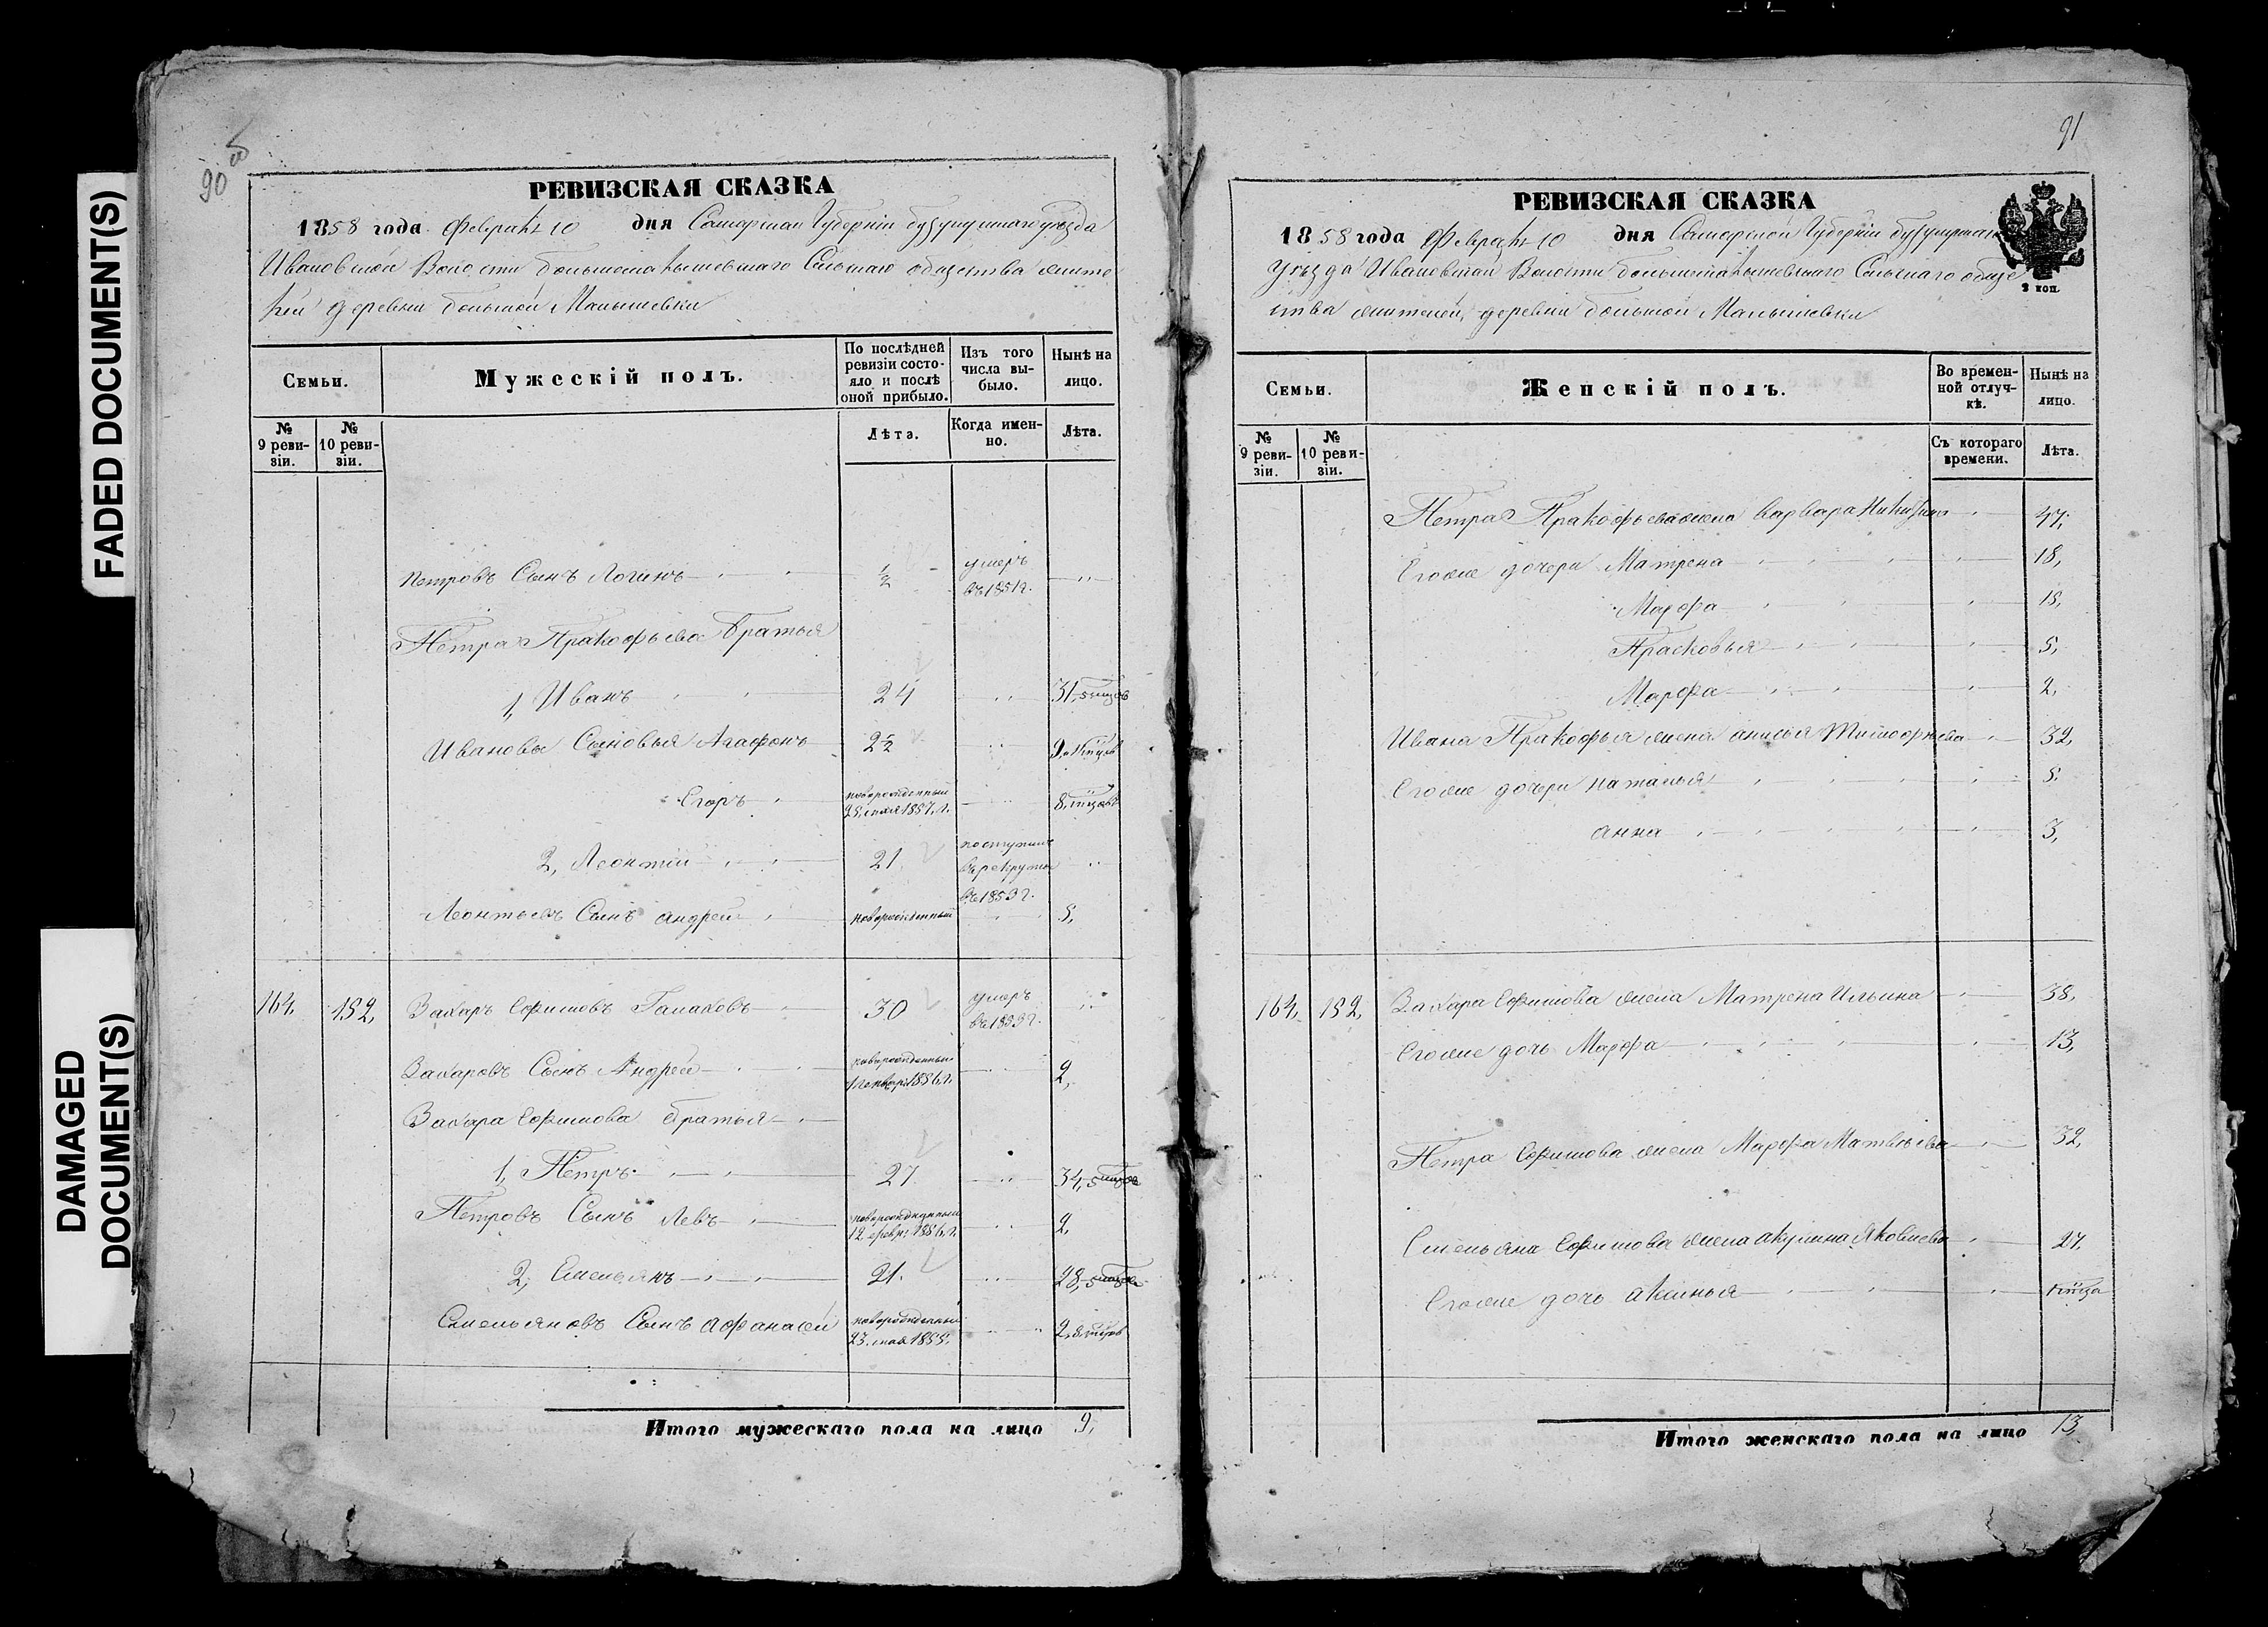 FADED DOCUMENT(S)
DAMAGED
DOCUMENT(S)
90 об
РЕВИЗСКАЯ СКАЗКА
1858 года Февраля 10 дня Самарской Губерніи бузулукскаго уѣзда
Ивановской Волости большемалышевскаго Сельскаго общества жите
лей деревни большой Малышевки
Семьи.
Мужескій полъ.
По послѣдней ревизіи состояло и послѣ оной прибыло.
Изъ того числа выбыло.
Ныне на лицо.
№ 9 ревизіи.
№ 10 ревизіи.
Лѣта.
Когда именно.
Лѣта.
Петровъ Сынъ Логинъ ½ умеръ въ 1851 г.
Петра Пракофьева братья
1, Иванъ 24 31,
Ивановы Сыновья Агафонъ 2½ 9.
Егоръ новорожденный 1857. г. 8.
2, Леонтій 21. поступилъ въ рекруты въ 1853 г.
Леонтьевъ Сынъ андрей новорожденный 5,
164, 152, Захаръ Ефимовъ 30 умеръ
Захаровъ Сынъ Андрей новорожденный 1 генвар. 1856. г. 2,
Захара Ефимова братья
1, Петръ 27. 34,
Петровъ Сынъ Левъ новорожденный 12 февр. 1856. г. 2,
2, Емельянъ 21. 28,
Емельяновъ Сынъ афанасей новорожденный 23. мая 1855. 2,
Итого мужескаго пола на лицо 9,
91
РЕВИЗСКАЯ СКАЗКА
1858 года Февраля 10 дня Самарской Губерніи бузулукскаго
2 коп.
Уѣзда Ивановской Волости большемалышевскаго Сельскаго обще
ства жителей, деревни большой Малышевки
Семьи.
Женскій полъ.
Во временной отлучкѣ.
Нынѣ на лицо.
№ 9 ревизіи.
№ 10 ревизіи.
Съ котораго времени.
Лѣта.
Петра Пракофьева жена Варвара Никитина 47,
Егоже дочери Матрена 18,
Марфа 15,
Прасковья 5,
Марфа 2,
Ивана Пракофья жена анисья Тимофѣева 32,
Егоже дочери наталья 5.
анна 3,
164, 152, Захара Ефимова жена Матрена Ильина 38,
Егоже дочь Марфа 13,
Петра Ефимова жена Марфа Матвѣева 32,
Емельяна Ефимова жена акулина Яковлева 27,
Егоже дочь аксинья
Итого женскаго пола на лицо 13,